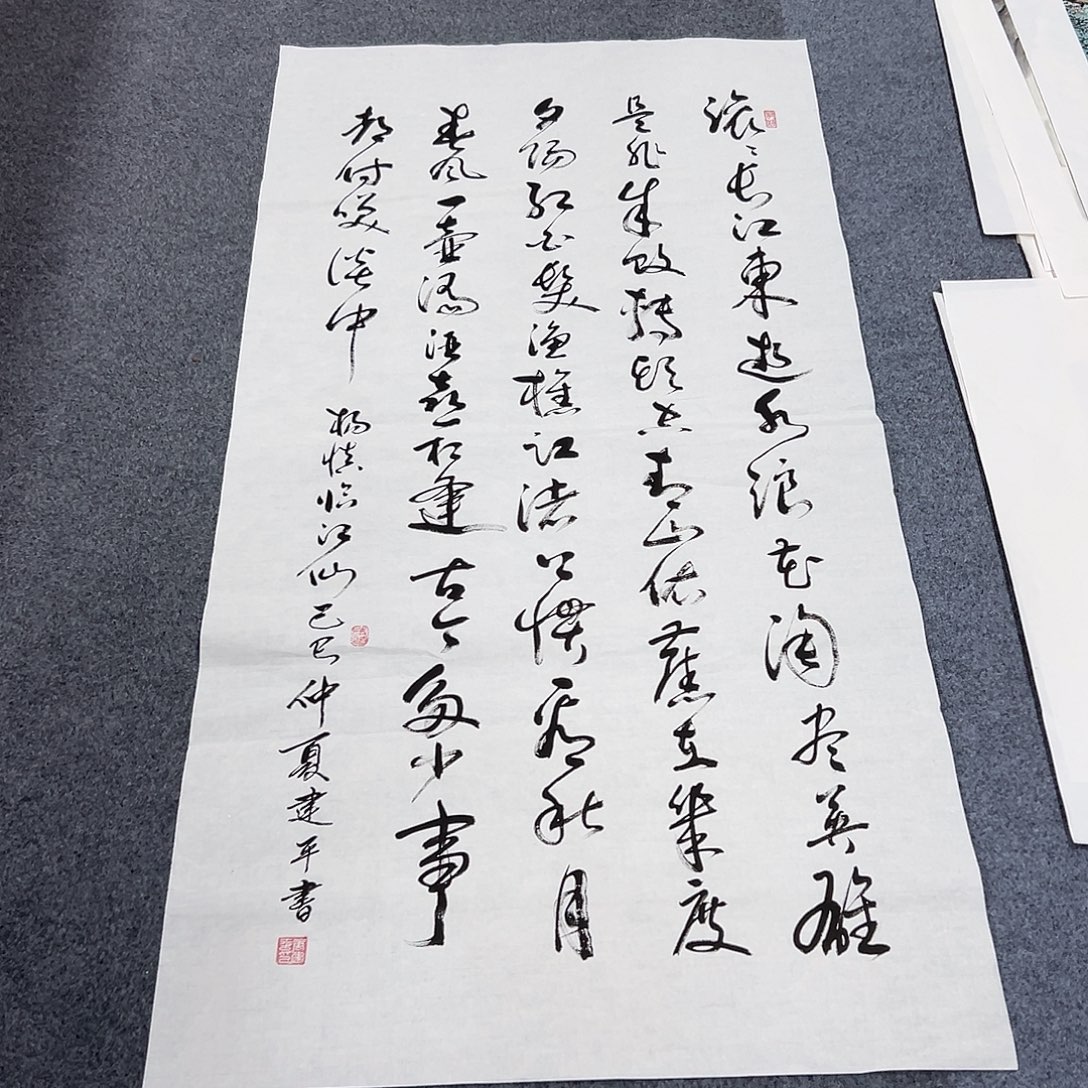 滚滚長江東逝水浪花淘尽英雄
是非成败转頭空青山依舊在幾度
夕陽红白髮渔樵江渚上惯看秋月
春风一壶濁酒喜相逢古今多少事
都付笑谈中 杨慎临江仙 乙巳仲夏建平書